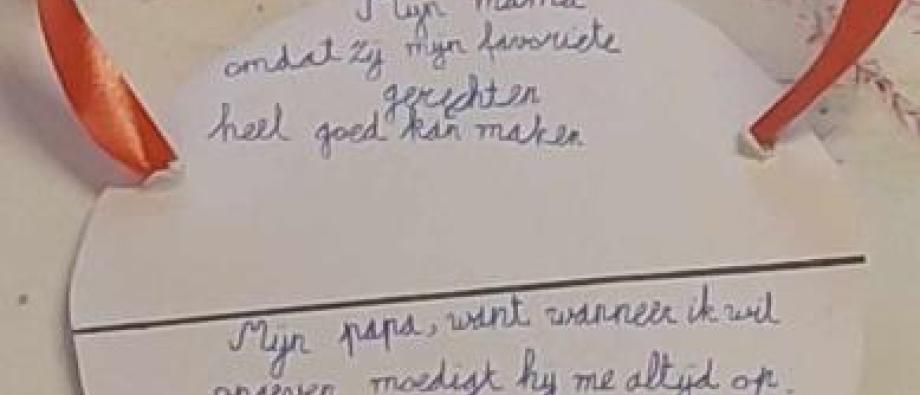 Mijn mama
omdat zij mijn favoriete
gerechten
heel goed kan maken
Mijn papa, want wanneer ik wil
opgeven moedigt hij me altijd op.